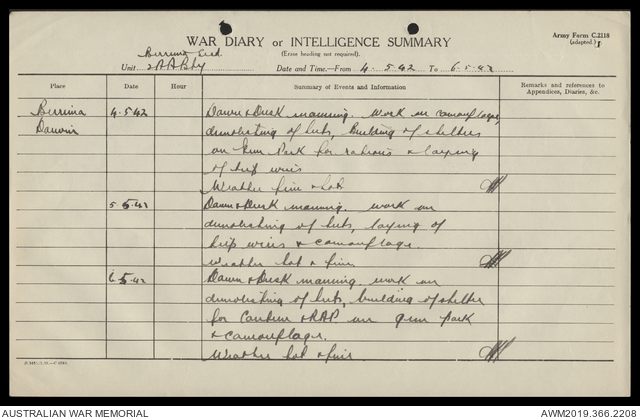 Army Form C.2118
(adapted.)
WAR DIARY or INTELLIGENCE SUMMARY
(Erase heading not required).
Berrima Sect.
Unit 2 AA Bty Date and Time—From 4.5.42 To 6.5.42
Place Date Hour Summary of Events and Information Remarks and references to Appendices, Diaries, &c.
Berrima 4.5.42 Dawn & Dusk manning. Work on camouflage,
Darwin demolishing of huts, Building of shelter
on Gun Park for rations & laying
of trip wires
Weather fine & hot
5.5.42 Dawn & Dusk manning. work on
demolishing of huts, laying of
trip wires & camouflage.
Weather hot & fine
6.5.42 Dawn & Dusk manning, work on
demolishing of huts, building of shelter
for Canteen & RAP on gun park
& camouflage.
Weather hot & fine
AUSTRALIAN WAR MEMORIAL AWM2019.366.2208